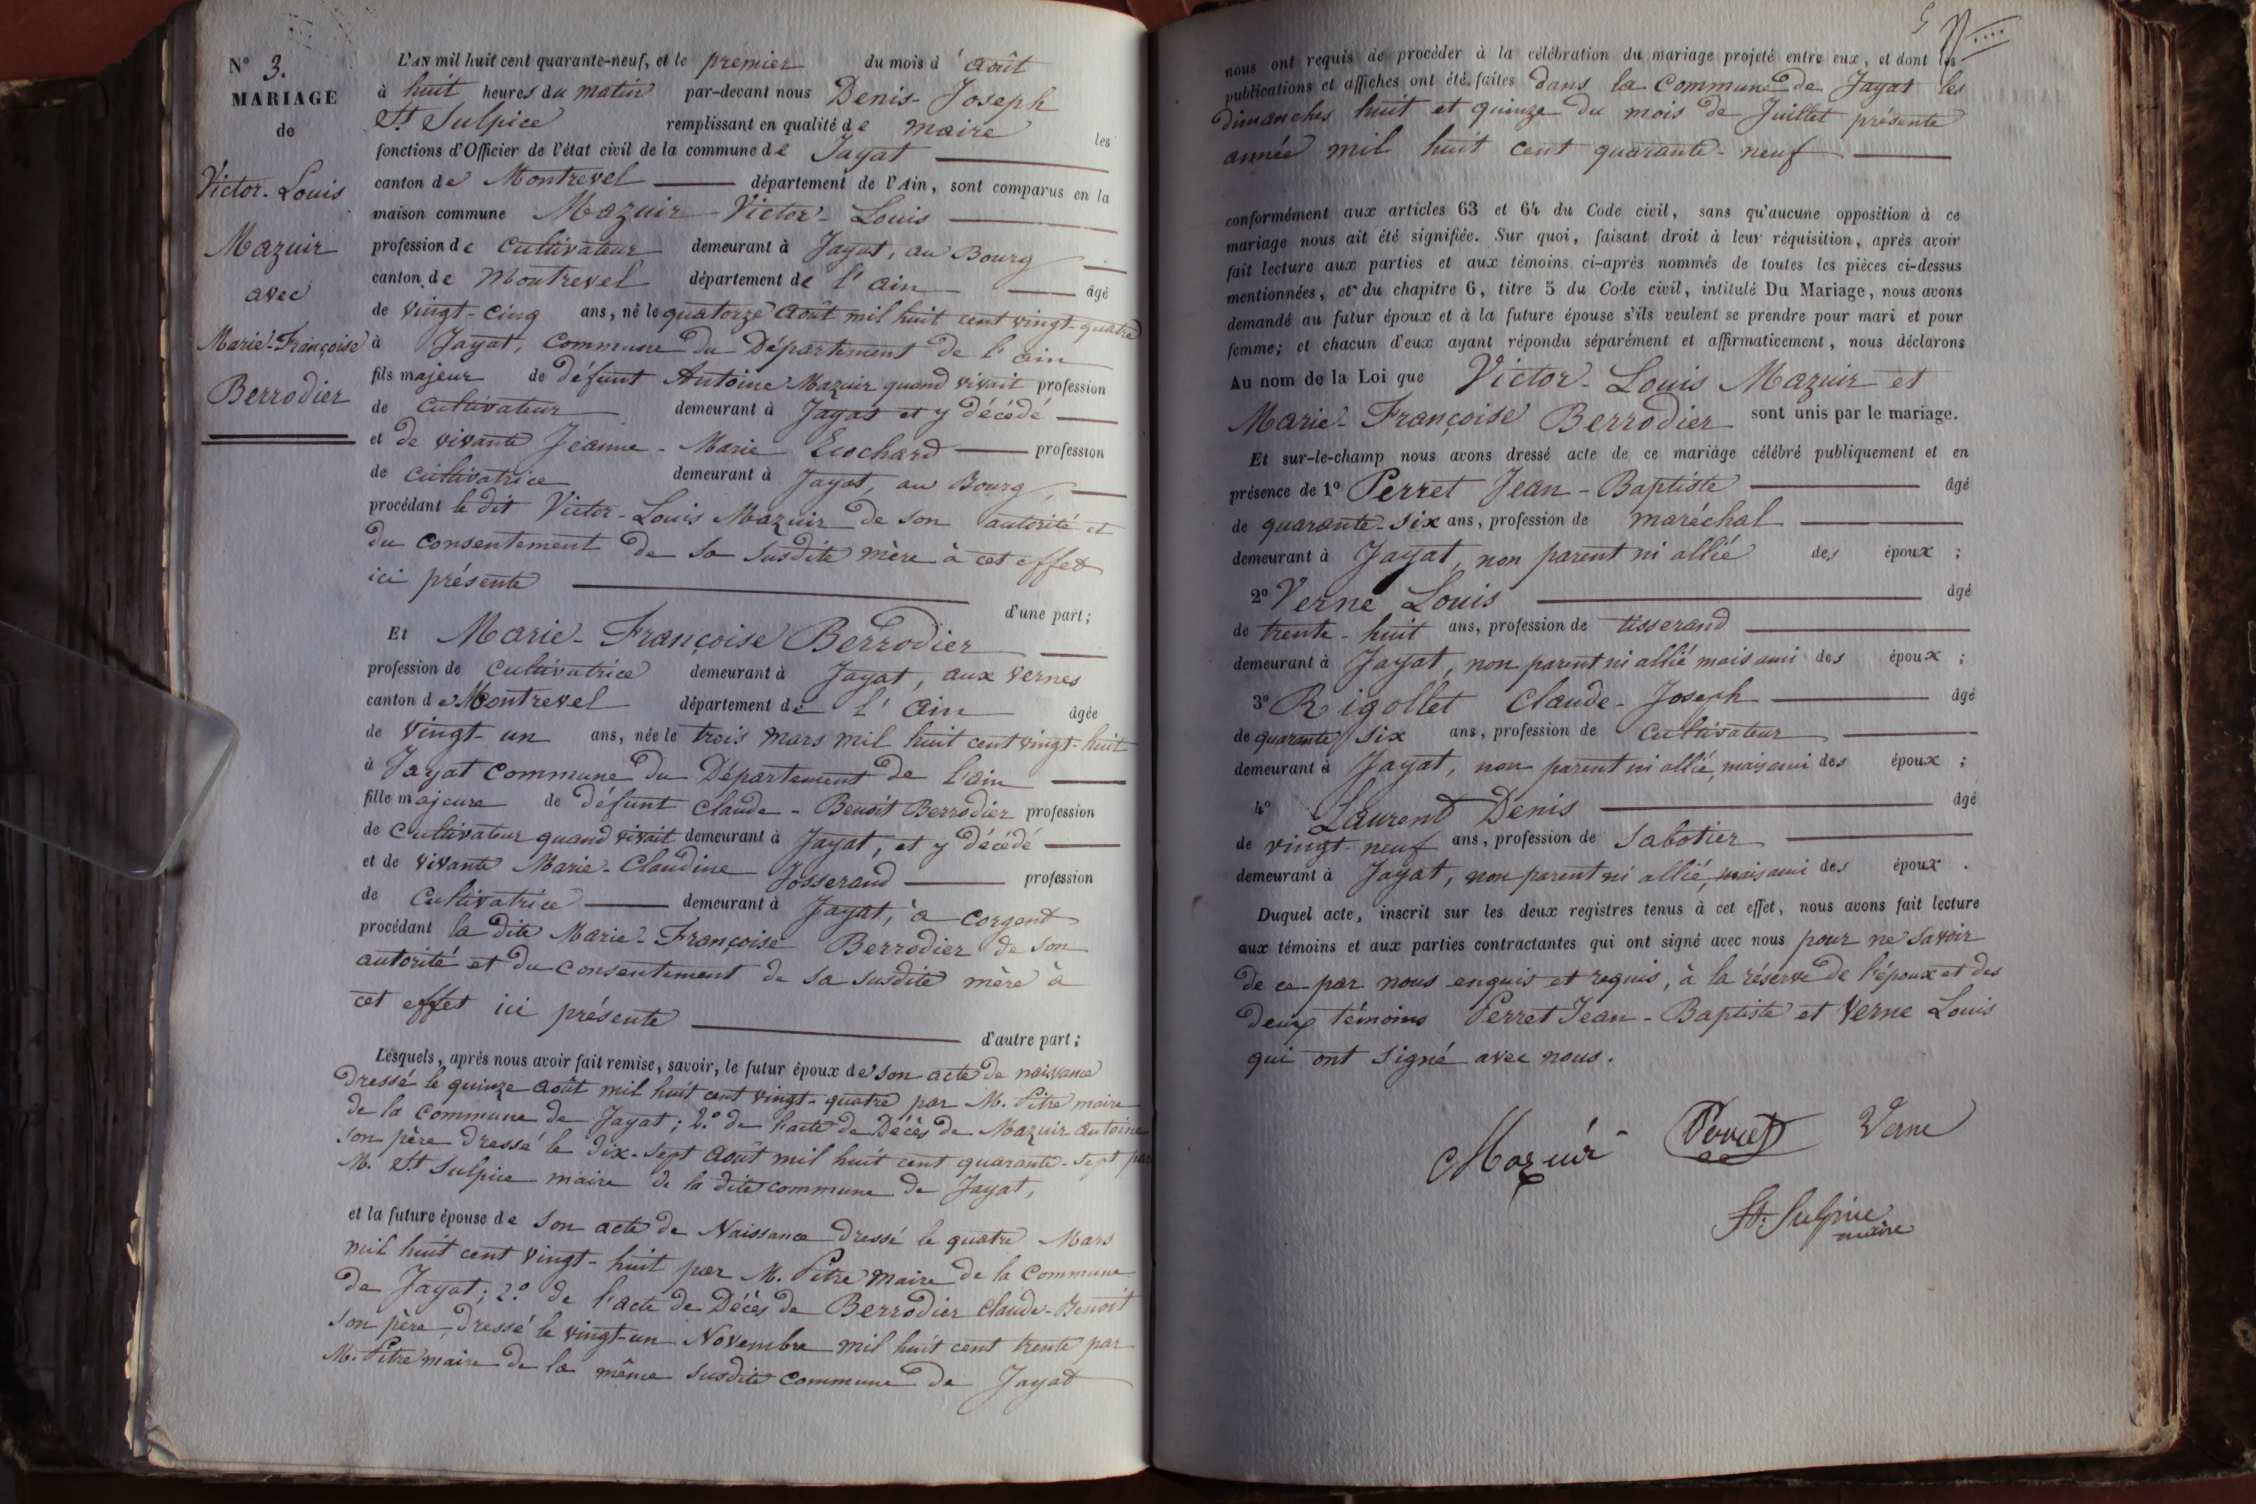 N° 3.
MARIAGE
de
Victor-Louis
Mazuir
avec
Marie-Françoise
Berrodier
L'AN mil huit cent quarante-neuf, et le premier du mois d'août
à huit heures du matin par-devant nous Denis-Joseph
St Sulpice remplissant en qualité de maire les
fonctions d'Officier de l'état civil de la commune de Jayat
canton de Montrevel département de l'Ain, sont comparus en la
maison commune Mazuir Victor-Louis
profession de cultivateur demeurant à Jayat, au Bourg
canton de Montrevel département de l'ain âgé
de vingt-cinq ans, né le quatorze août mil huit cent vingt-quatre
à Jayat, commune du Département de l'ain
fils majeur de défunt Antoine Mazuir quand vivait profession
de cultivateur demeurant à Jayat et y décédé
et de vivante Jeanne-Marie Ecochard profession
de cultivatrice demeurant à Jayat, au Bourg,
procédant le dit Victor-Louis Mazuir de son autorité et
du consentement de sa susdite mère à cet effet
ici présente
d'une part;
Et Marie-Françoise Berrodier
profession de cultivatrice demeurant à Jayat, aux vernes
canton de Montrevel département de l'ain âgée
de vingt-un ans, née le trois mars mil huit cent vingt-huit
à Jayat commune du Département de l'ain
fille majeure de défunt Claude-Benoit Berrodier profession
de cultivateur quand vivait demeurant à Jayat, et y décédé
et de vivante Marie-Claudine Josserand profession
de cultivatrice demeurant à Jayat, à Corgent
procédant la dite Marie-Françoise Berrodier de son
autorité et du consentement de sa susdite mère à
cet effet ici présente
d'autre part;
Lesquels, après nous avoir fait remise, savoir, le futur époux de son acte de naissance
dressé le quinze août mil huit cent vingt-quatre par M. Pitre maire
de la commune de Jayat; 2.° de l'acte de Décès de Mazuir antoine
son père dressé le dix-sept août mil huit cent quarante-sept par
M. St Sulpice maire de la dite commune de Jayat,
et la future épouse de son acte de Naissance dressé le quatre Mars
mil huit cent vingt-huit par M. Pitre maire de la commune
de Jayat; 2.° de l'acte de Décès de Berrodier claude-Benoit
son père, dressé le vingt-un Novembre mil huit cent trente par
M. Pitre maire de la même susdite commune de Jayat
nous ont requis de procéder à la célébration du mariage projeté entre eux, et dont les
publications et affiches ont été faites dans la commune de Jayat les
dimanches huit et quinze du mois de Juillet présente
année mil huit cent quarante-neuf
conformément aux articles 63 et 64 du Code civil, sans qu'aucune opposition à ce
mariage nous ait été signifiée. Sur quoi, faisant droit à leur réquisition, après avoir
fait lecture aux parties et aux témoins ci-après nommés de toutes les pièces ci-dessus
mentionnées, et du chapitre 6, titre 5 du Code civil, intitulé Du Mariage, nous avons
demandé au futur époux et à la future épouse s'ils veulent se prendre pour mari et pour
femme; et chacun d'eux ayant répondu séparément et affirmativement, nous déclarons
Au nom de la Loi que Victor-Louis Mazuir et
Marie-Françoise Berrodier sont unis par le mariage.
Et sur-le-champ nous avons dressé acte de ce mariage célébré publiquement et en
présence de 1° Perret Jean-Baptiste âgé
de quarante-six ans, profession de maréchal
demeurant à Jayat, non parent ni allié des époux;
2° Verne Louis âgé
de trente-huit ans, profession de tisserand
demeurant à Jayat, non parent ni allié mais ami des époux;
3° Rigollet Claude-Joseph âgé
de quarante six ans, profession de cultivateur
demeurant à Jayat, non parent ni allié, mais ami des époux;
4° Laurent Denis âgé
de vingt-neuf ans, profession de sabotier
demeurant à Jayat, non parent ni allié, mais ami des époux.
Duquel acte, inscrit sur les deux registres tenus à cet effet, nous avons fait lecture
aux témoins et aux parties contractantes qui ont signé avec nous pour ne savoir
de ce par nous enquis et requis, à la réserve de l'époux et des
deux témoins Perret Jean-Baptiste et Verne Louis
qui ont signé avec nous.
Mazuir Perret Verne
St. Sulpice
maire